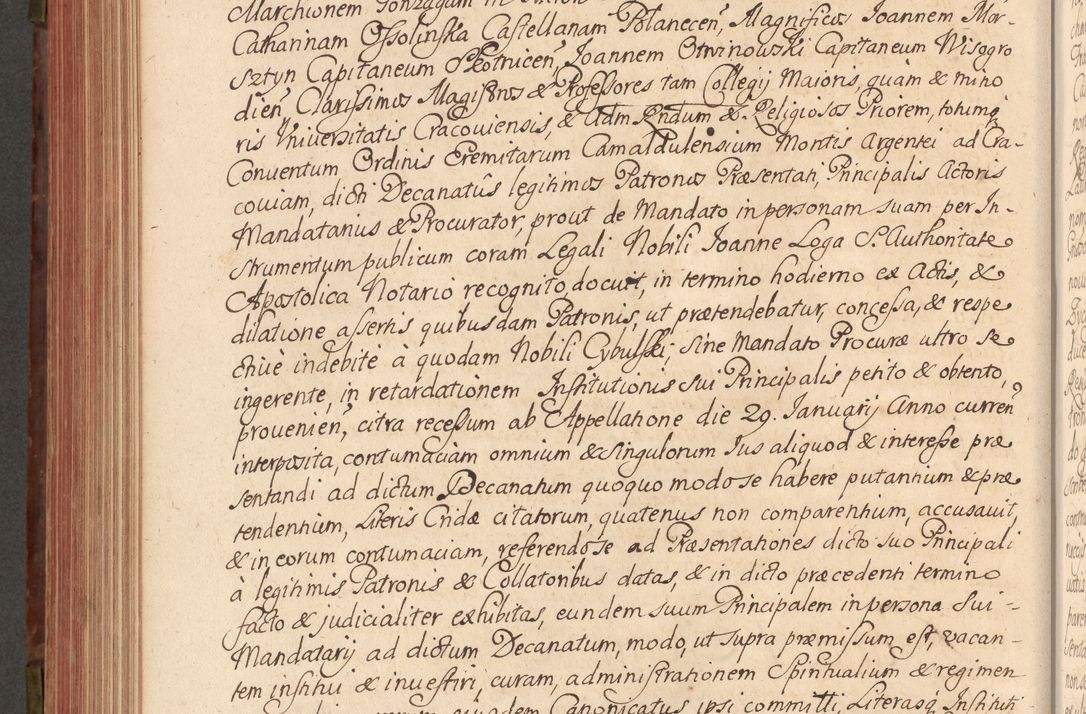 Marchionem Gonzagam in
Catharinam Ossolinska Castellanam Polanecen, Magnificos Joannem Mor-
sztyn Capitaneum Skotnicen, Joannem Otwinowski Capitaneum Wisogro
dien Clarissimos Magistros & Professores tam Collegij Maioris, quàm & mino
ris Universitatis Cracoviensis, & Adm Rndum & Religiosos Priorem, totumq
Conventum Ordinis Eremitarum Camaldulensium Montis Argentei ad Cra-
coviam, dicti Decanatûs legitimos Patronos Præsentati, Principalis Actoris
Mandatarius & Procurator, prout de Mandato in personam suam per In-
strumentum publicum coram Legali Nobili Joanne Loga S. Authoritate
Apostolica Notario recognito docuit, in termino hodierno ex Actis, &
dilatione assertis quibusdam Patronis, ut prætendebatur, concessa, & respe
ctivè indebitè à quodam Nobili Cybulski, sine Mandato Procuræ ultro se
ingerente, in retardationem Institutionis sui Principalis petito & obtento,
provenien, citra recessum ab Appellatione die 29. Januarij Anno curren
interposita, contumaciam omnium & singulorum Jus aliquod & interesse præ
sentandi ad dictum Decanatum quoquo modo se habere putantium & præ
tendentium, Literis Cridæ citatorum, quatenus non comparentium, accusavit,
& in eorum contumaciam, referendo se ad Præsentationes dicto suo Principali
à legitimis Patronis & Collatoribus datas, & in dicto præcedenti termino
facto & judicialiter exhibitas, eundem suum Principalem in persona sui-
Mandatarij ad dictum Decanatum, modo, ut supra præmissum est, vacan-
tem institui & investiri, curam, administrationem Spiritualium & regimen
ejusdem Canonicatus ipsi committi, Literasq Instituti